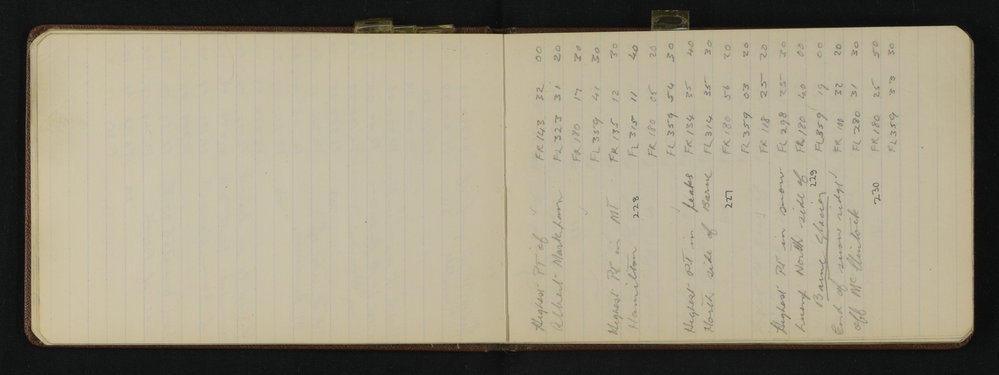 Highest Pt of FR 143 32 00
Albert Markham FL 323 31 20
FR 180 17 30
FL 359 41 30
Highest Pt in MT FR 135 12 30
Hamilton 228 FL 315 11 40
FR 180 05 20
FL 359 54 30
Highest PT in peaks FR 134 35 40
North side of Barne FL 314 35 30
227 FR 180 56 20
FL 359 03 20
FR 118 25 20
Highest Pt in snow FL 298 25 30
hump North side of FR 180 40 00
Barne Glacier 229 FL 359 19 00
End of snow ridge FR 32 20
off McClintock FL 280 31 30
230 FR 180 25 50
FL 359 30